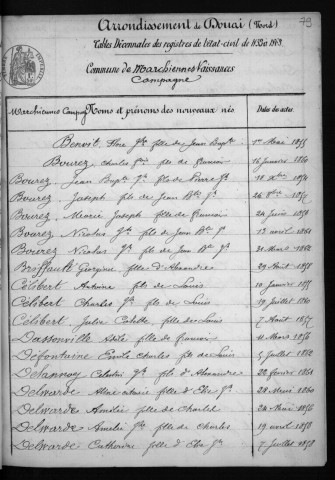 79
Arrondissement de Douai (Nord)
Tables Décennales des registres de l'état-civil de 1853 à 1863.
Commune de Marchiennes Naissances
Campagne
Marchiennes Campagne Noms et prénoms des nouveaux nés Dates des actes
Benoit fille de Jean Bapte 1er Mai 1855
Bourez Charles fils de 16 Janvier 1860
Bourez Jean Bapte Jh fils de Pierre Jh 1854
Bourez Joseph fils de Jean Bte Jh 26 1857
Bourez Marie Joseph fille de 24 Juin 1858
Bourez Nicolas Jh fils de Jean Bte Jh 13 avril 1861
Bourez Nicolas Jh fils de Jean Bte Jh 31 Mars 1862
Briffault Georgine fille d'Alexandre 29 Août 1858
Célibert Antoine fils de Louis 10 Janvier 1855
Célibert Charles Jh fils de Louis 19 Juillet 1860
Célibert Julie fille de Louis 7 Août 1857
Dassonville fille de 11 Mars 1856
Défontaine Charles fils de Louis 5 Juillet 1862
Delannoy Célestin Jh fils d'Alexandre 22 février 1861
Delwarde fille d'Elie Jh 28 Mai 1860
Delwarde Amélie fille de Charles 24 Mai 1856
Delwarde Amélie fille de Charles 19 avril 1858
Delwarde Catherine fille d'Elie Jh 7 Juillet 1858